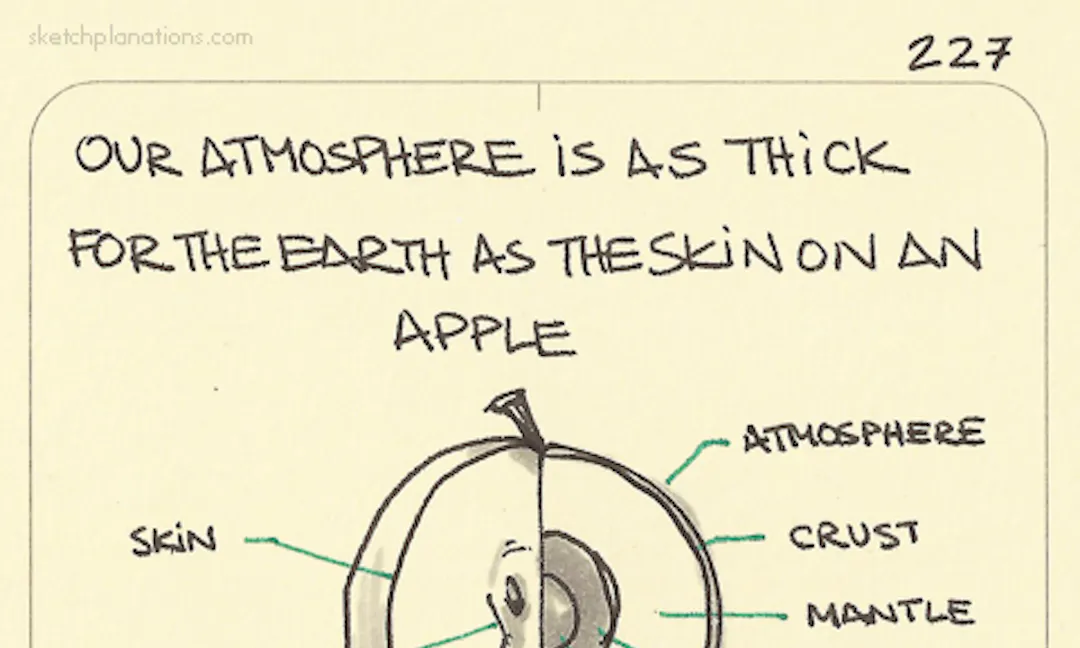 sketchplanations.com
227
OUR ATMOSPHERE iS AS THiCK
FOR THE EARTH AS THE SKiN ON AN
APPLE
ATMOSPHERE
SKiN
CRUST
MANTLE